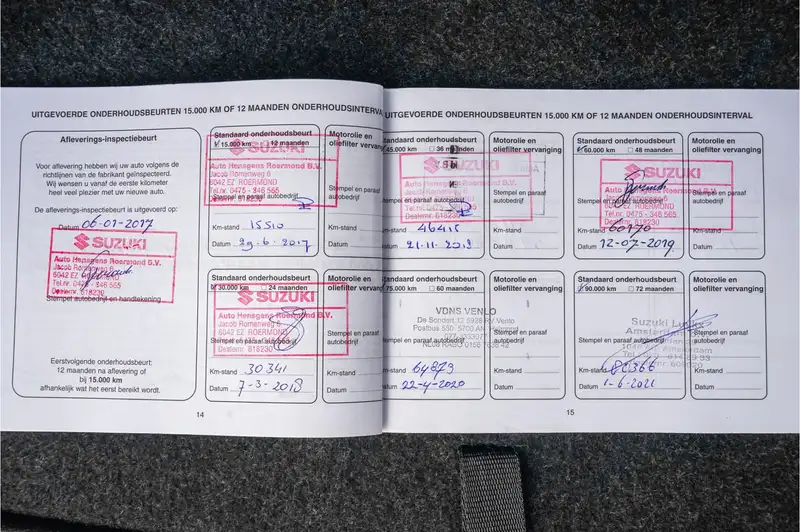 UITGEVOERDE ONDERHOUDSBEURTEN 15.000 KM OF 12 MAANDEN ONDERHOUDSINTERVAL
Afleverings-inspectiebeurt
Voor aflevering hebben wij uw auto volgens de
richtlijnen van de fabrikant geïnspecteerd.
Wij wensen u vanaf de eerste kilometer
heel veel plezier met uw nieuwe auto.
De afleverings-inspectiebeurt is uitgevoerd op:
Datum 06-01-2017
SUZUKI
Auto Henagens Roermond B.V.
Jacob Romenweg 6
6042 EZ ROERMOND
Tel.nr. 0475 - 346 565
Dealernr. 618230
Stempel autobedrijf en handtekening
Eerstvolgende onderhoudsbeurt:
12 maanden na aflevering of
bij 15.000 km
afhankelijk wat het eerst bereikt wordt.
Standaard onderhoudsbeurt
15.000 km 12 maanden
SUZUKI
Auto Henagens Roermond B.V.
Jacob Romenweg 6
6042 EZ ROERMOND
Tel.nr. 0475 - 346 565
Stempel en paraaf autobedrijf
Km-stand 15510
Datum 29-6-2017
Motorolie en
oliefilter vervanging
Stempel en paraaf
autobedrijf
Km-stand
Datum
Standaard onderhoudsbeurt
30.000 km 24 maanden
SUZUKI
Auto Henagens Roermond B.V.
Jacob Romenweg 6
6042 EZ ROERMOND
Tel.nr. 0475 - 346 565
Dealernr. 618230
Stempel en paraaf autobedrijf
Km-stand 30341
Datum 7-3-2018
Motorolie en
oliefilter vervanging
Stempel en paraaf
autobedrijf
Km-stand
Datum
14
UITGEVOERDE ONDERHOUDSBEURTEN 15.000 KM OF 12 MAANDEN ONDERHOUDSINTERVAL
Standaard onderhoudsbeurt
45.000 km 36 maanden
SUZUKI
Auto Henagens Roermond B.V.
Stempel en paraaf autobedrijf
Km-stand 46415
Datum 21-11-2018
Motorolie en
oliefilter vervanging
Stempel en paraaf
autobedrijf
Km-stand
Datum
Standaard onderhoudsbeurt
60.000 km 48 maanden
SUZUKI
Auto Henagens Roermond B.V.
Jacob Romenweg 6
6042 EZ ROERMOND
Tel.nr. 0475 - 346 565
Dealernr. 618230
Km-stand 60170
Datum 12-07-2019
Motorolie en
oliefilter vervanging
Stempel en paraaf
autobedrijf
Km-stand
Datum
Standaard onderhoudsbeurt
75.000 km 60 maanden
VDNS VENLO
Stempel en paraaf autobedrijf
Km-stand 64873
Datum 22-4-2020
Motorolie en
oliefilter vervanging
Stempel en paraaf
autobedrijf
Km-stand
Datum
Standaard onderhoudsbeurt
90.000 km 72 maanden
Suzuki
Amsterdam
Stempel en paraaf autobedrijf
Km-stand
Datum 1-6-2021
Motorolie en
oliefilter vervanging
Stempel en paraaf
autobedrijf
Km-stand
Datum
15